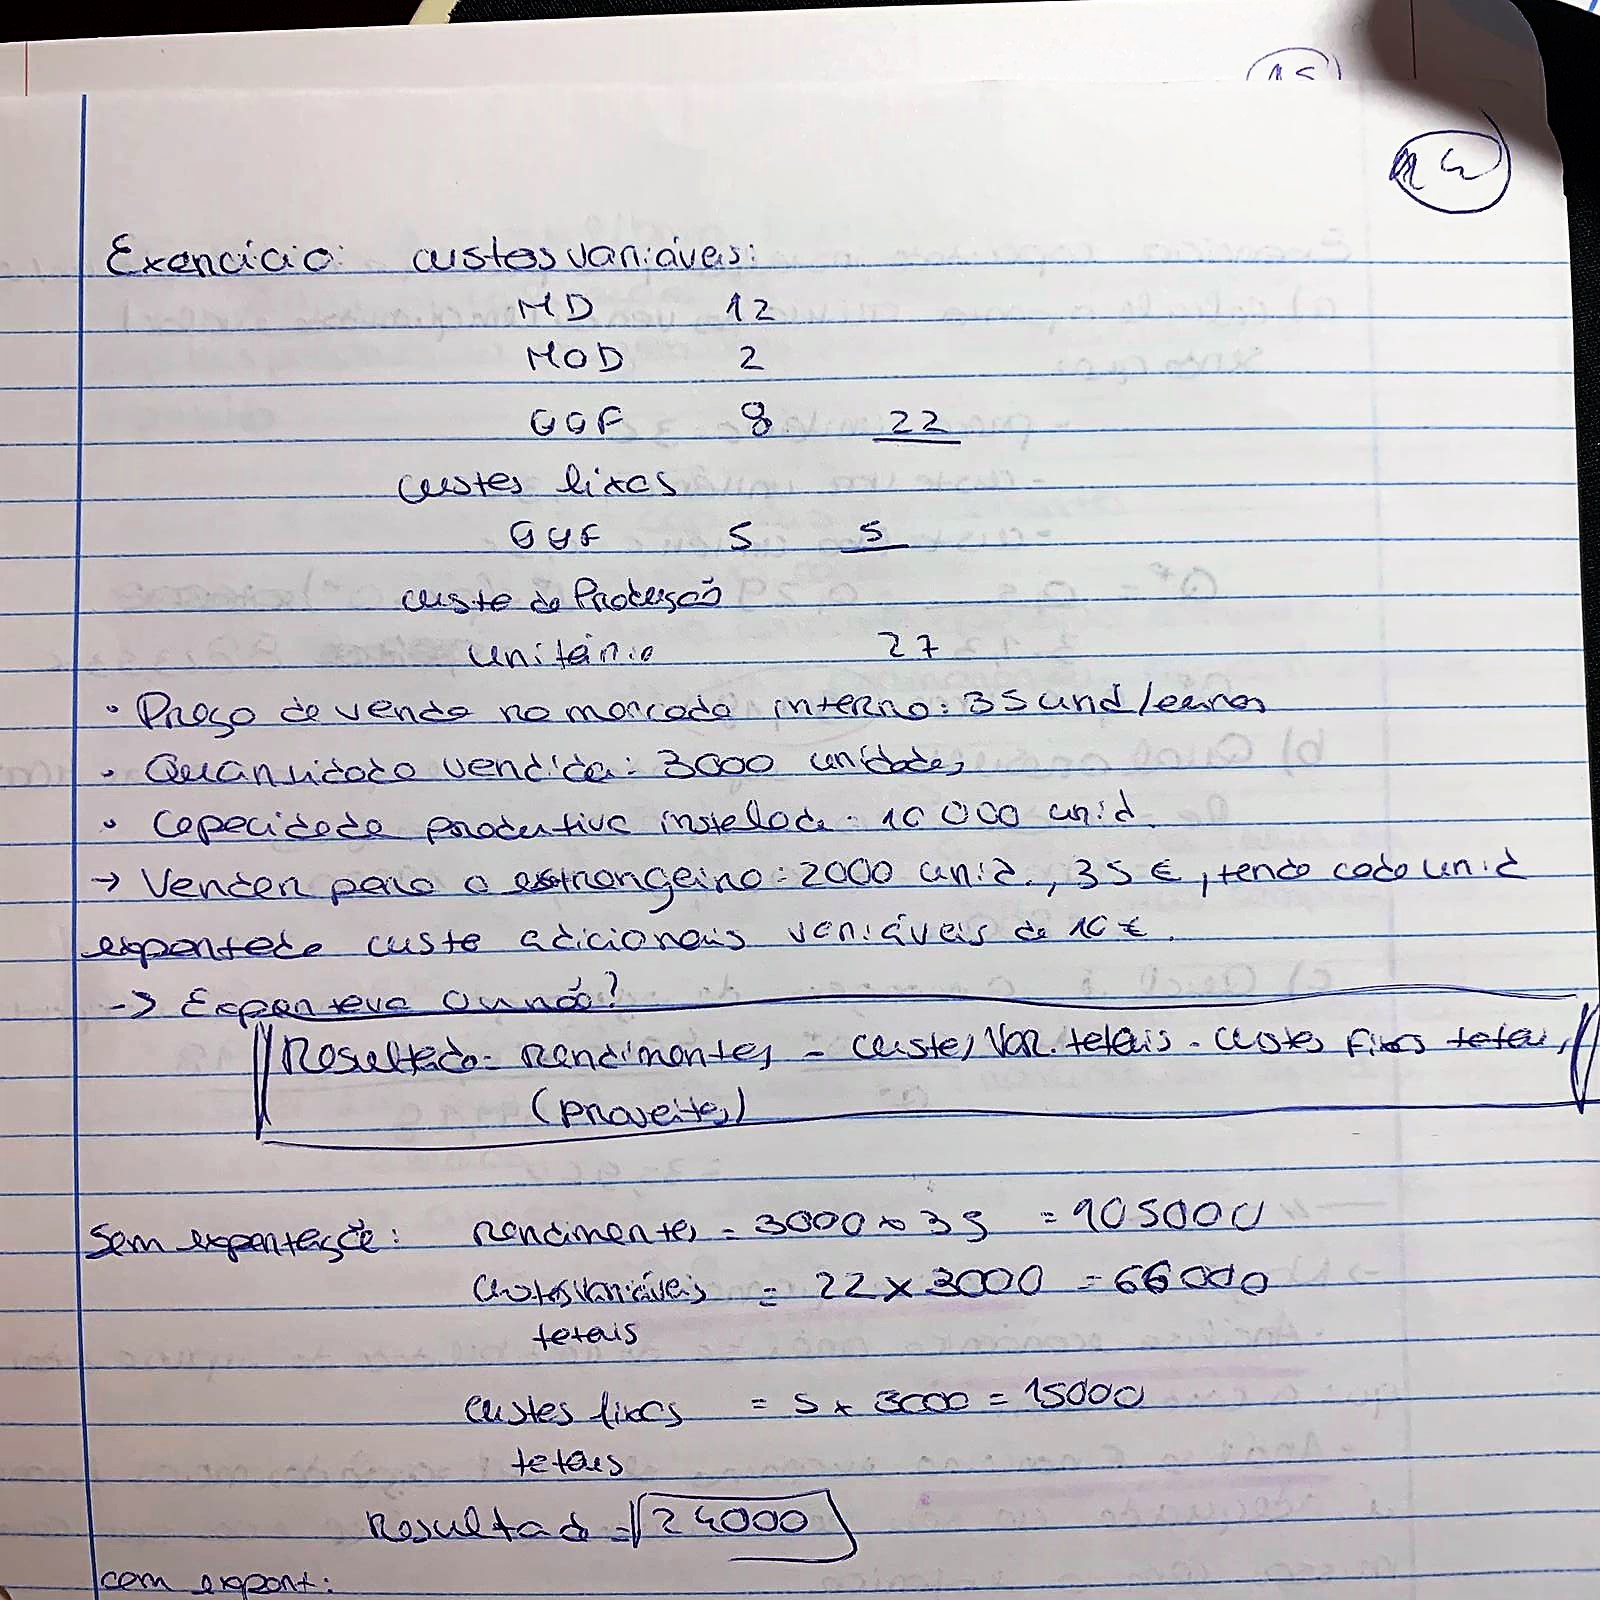 15
14
Exercício: custos variáveis:
MD 12
MOD 2
GGF 8 22
custos fixos
GGF 5 5
custo de Produção
unitário 27
• Preço de venda no mercado interno: 35 und/euros
• Quantidade vendida: 3000 unidades
• Capacidade produtiva instalada: 10 000 unid.
→ Vender para o estrangeiro: 2000 unid., 35 €, tendo cada unid
exportada custo adicionais variáveis de 10 €.
→ Exportava ou não?
Resultado = rendimentos - custos Var. totais - custos fixos totais
(proveitos)
Sem exportação: rendimentos = 3000 × 35 = 105000
Custos variáveis = 22 × 3000 = 66000
totais
custos fixos = 5 × 3000 = 15000
totais
Resultado = 24000
com export: